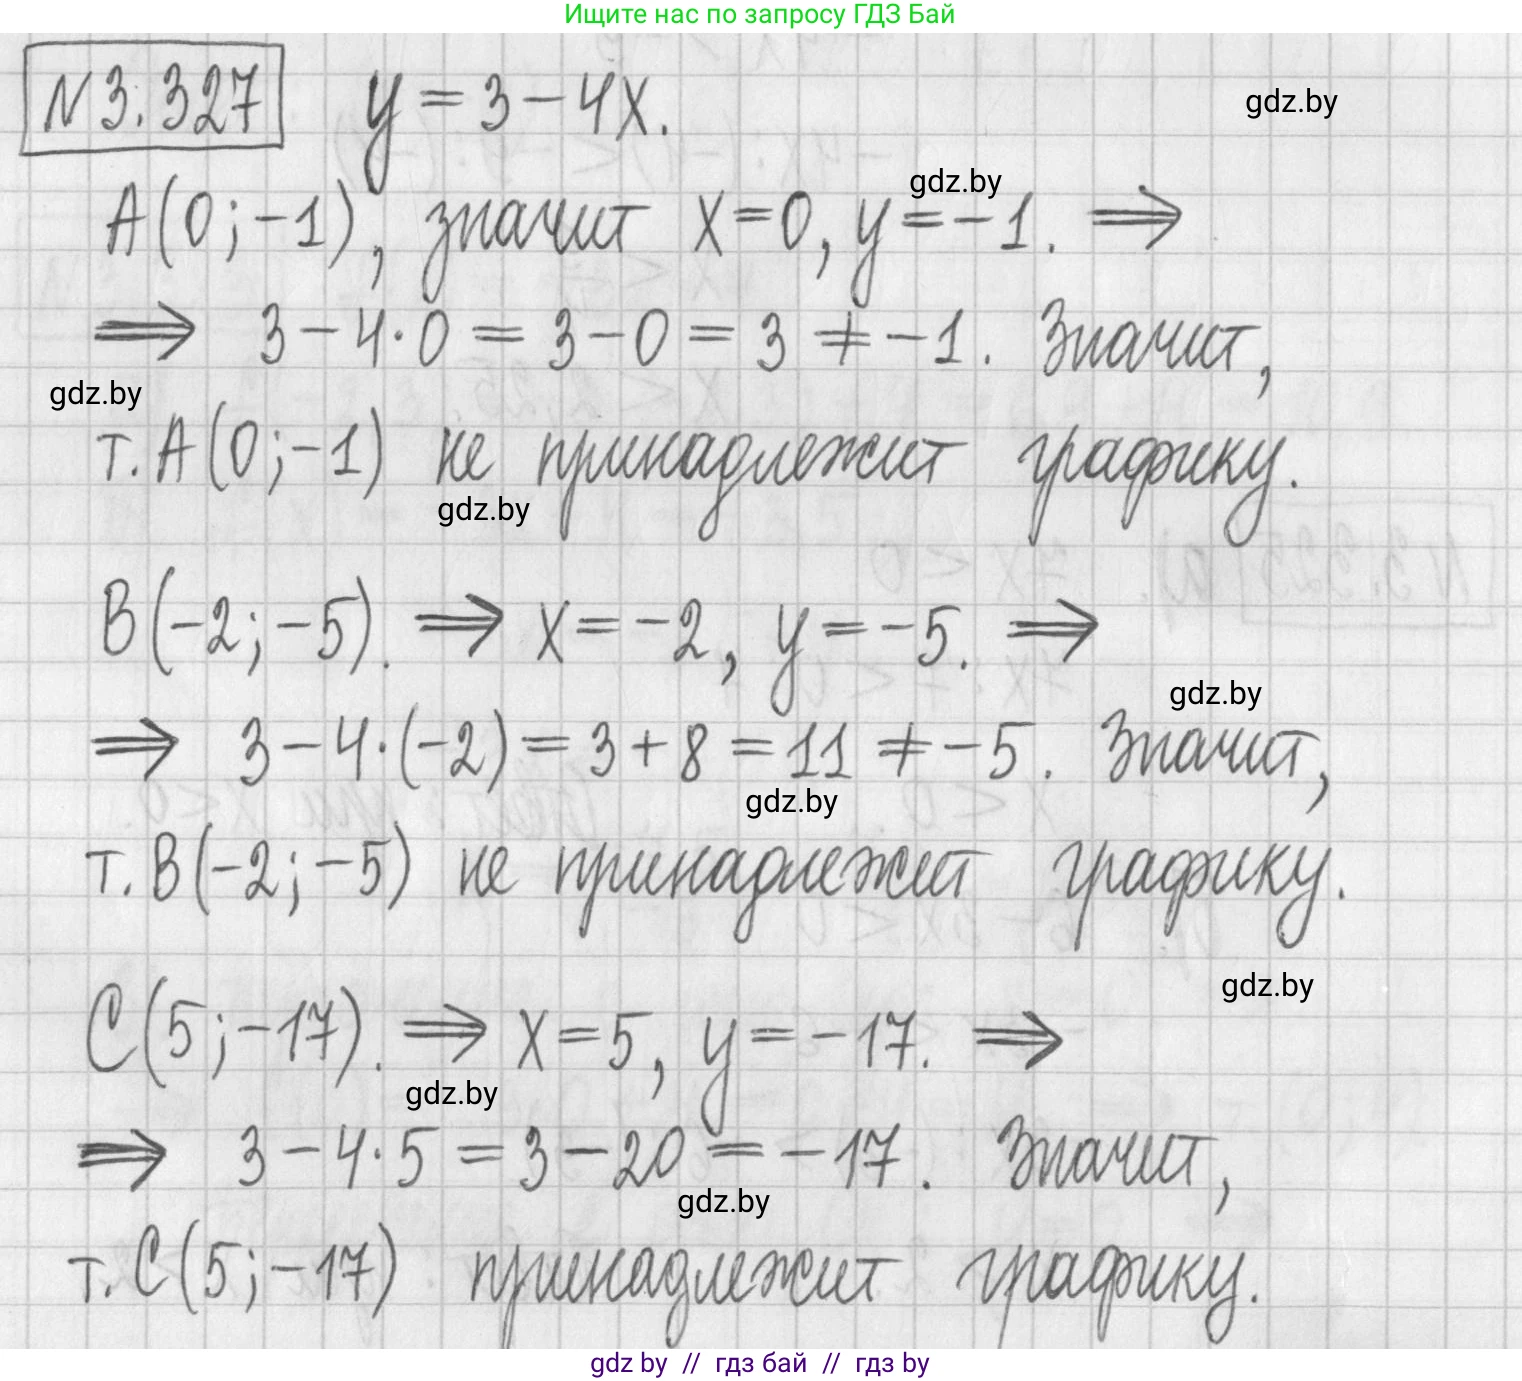 Ищите нас по запросу ГДЗ Бай
N3.327 y = 3 - 4x.
gdz.by
gdz.by
A(0; -1), значит x = 0, y = -1. ⟹
⟹ 3 - 4·0 = 3 - 0 = 3 ≠ -1. Значит,
gdz.by
т. A(0; -1) не принадлежит графику.
gdz.by
B(-2; -5). ⟹ x = -2, y = -5. ⟹
gdz.by
⟹ 3 - 4·(-2) = 3 + 8 = 11 ≠ -5. Значит,
gdz.by
т. B(-2; -5) не принадлежит графику.
gdz.by
C(5; -17). ⟹ x = 5, y = -17. ⟹
gdz.by
⟹ 3 - 4·5 = 3 - 20 = -17. Значит,
gdz.by
т. C(5; -17) принадлежит графику.
gdz by // гдз бай // гдз by